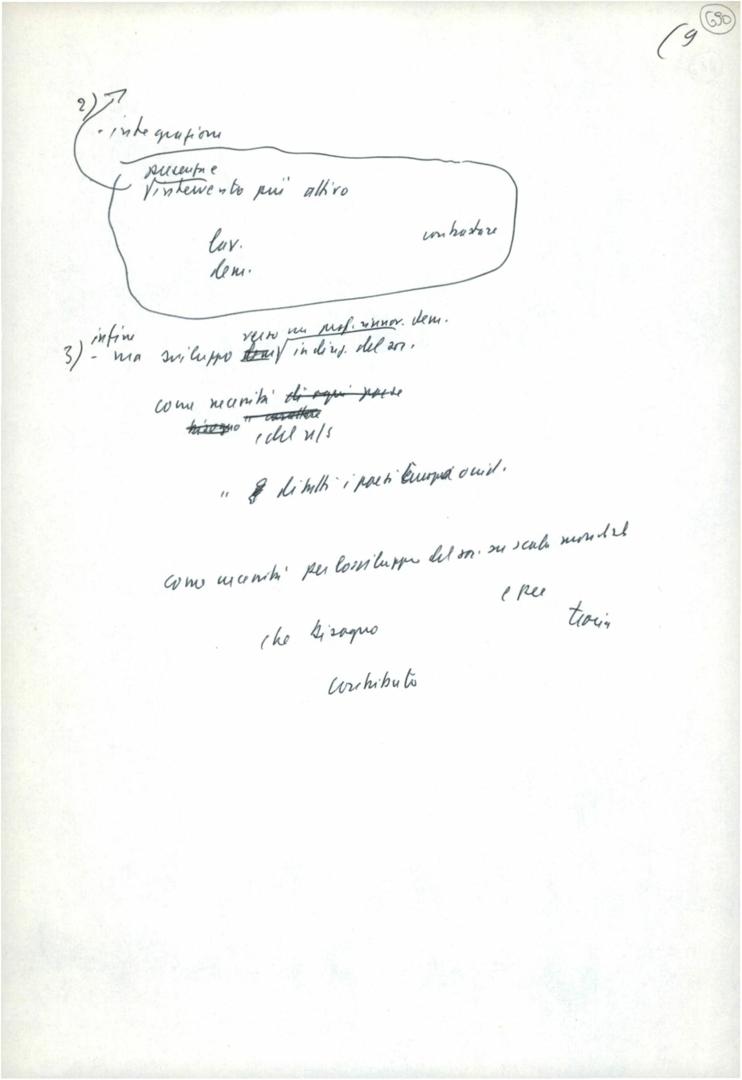 690
(9
2)
- integrazione
presenza e
intervento più attivo
lav.
contrastare
dem.
infine
verso un prof. rinnov. dem.
3) - ma sviluppo dem indip. del soc.
come necessità di ogni paese
bisogno " carattere
e del n/s
" di tutti i paesi Europa occid.
come necessità per lo sviluppo del soc. su scala mondiale
e per
che bisogno
contributo